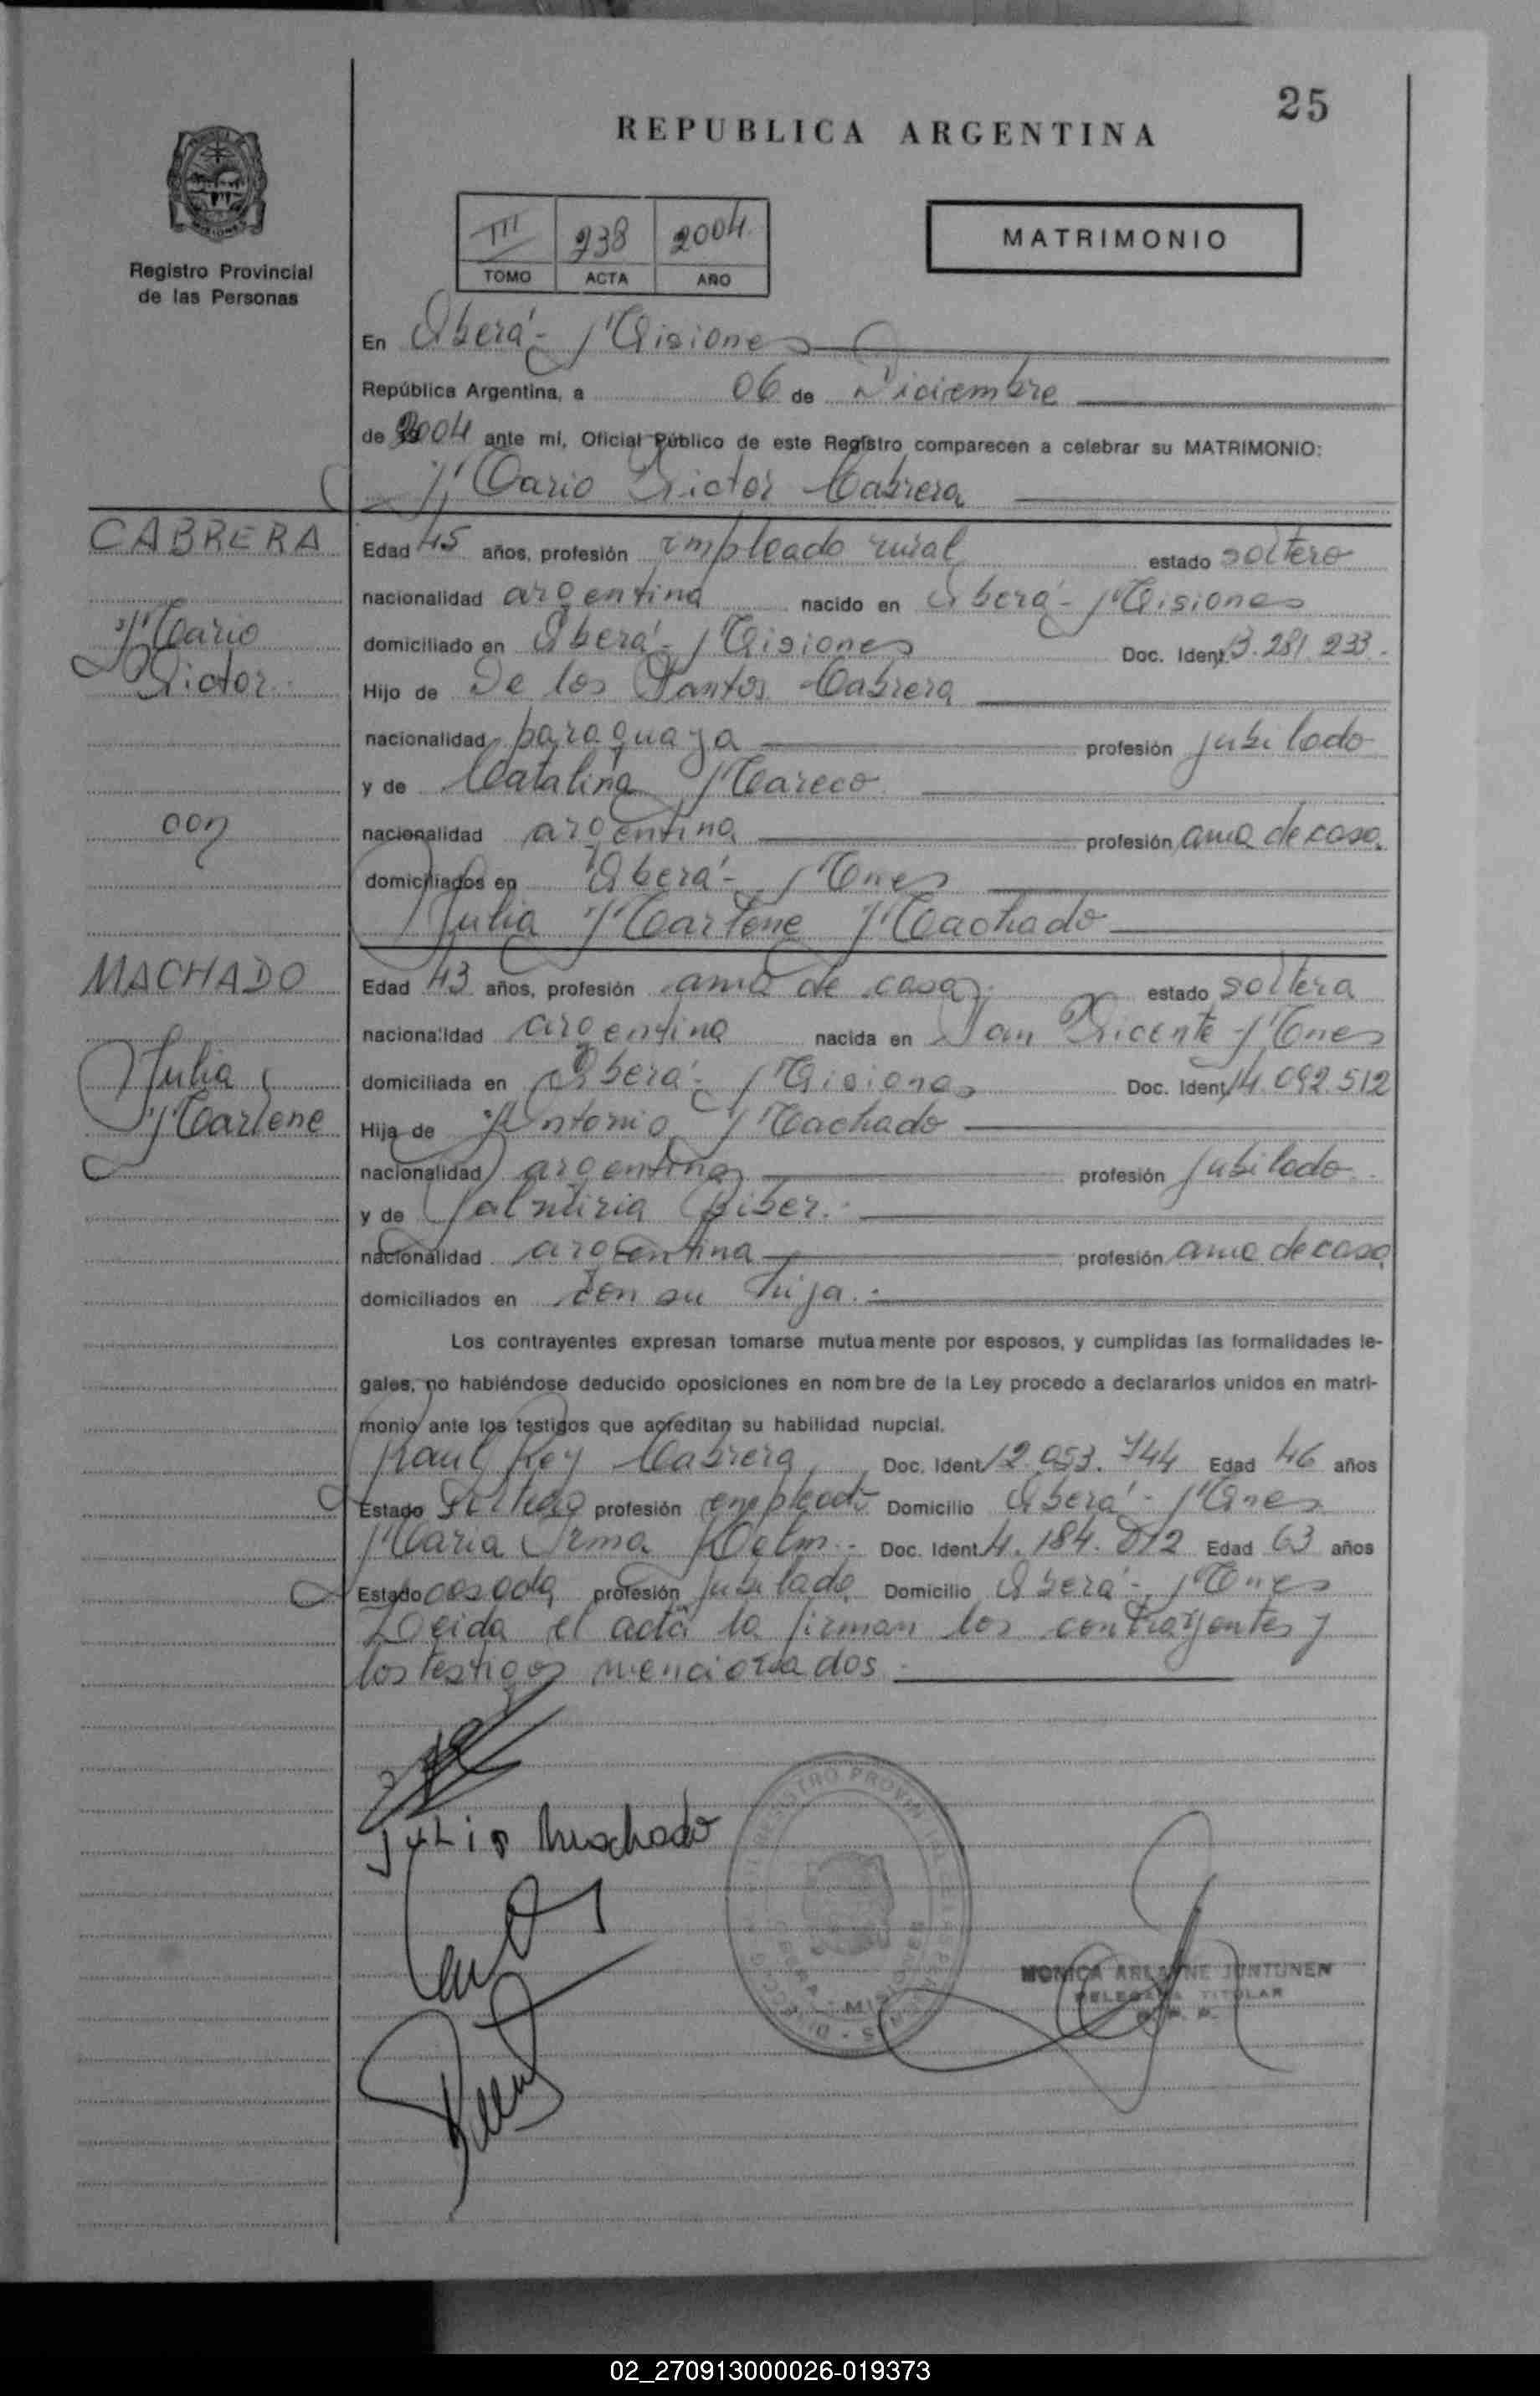 25
REPUBLICA ARGENTINA
Registro Provincial
de las Personas
III 238 2004
TOMO ACTA AÑO
MATRIMONIO
En Oberá - Misiones
República Argentina, a 06 de Diciembre
de 2004 ante mí, Oficial Público de este Registro comparecen a celebrar su MATRIMONIO:
Mario Victor Cabrera
CABRERA
Mario
Victor
con
MACHADO
Julia
Marlene
Edad 45 años, profesión empleado rural estado soltero
nacionalidad argentina nacido en Oberá - Misiones
domiciliado en Oberá - Misiones Doc. Ident. 13.281.233.
Hijo de De los Santos Cabrera
nacionalidad paraguaya profesión jubilado
y de Catalina Mareco
nacionalidad argentina profesión ama de casa
domiciliados en Oberá - Mnes
Julia Marlene Machado
Edad 43 años, profesión ama de casa estado soltera
nacionalidad argentina nacida en San Vicente - Mnes
domiciliada en Oberá - Misiones Doc. Ident. 14.092.512
Hija de Antonio Machado
nacionalidad argentina profesión jubilado
y de Biber.
nacionalidad argentina profesión ama de casa
domiciliados en con su hija.
Los contrayentes expresan tomarse mutuamente por esposos, y cumplidas las formalidades le-
gales, no habiéndose deducido oposiciones en nombre de la Ley procedo a declararlos unidos en matri-
monio ante los testigos que acreditan su habilidad nupcial.
Raul Rey Cabrera, Doc. Ident. 12.053.744 Edad 46 años
Estado soltero profesión empleado Domicilio Oberá - Mnes
Maria Irma Delm. Doc. Ident. 4.184.012 Edad 63 años
Estado casada profesión jubilada Domicilio Oberá - Mnes
Leida el acta la firman los contrayentes y
los testigos mencionados.
Julia Machado
MONICA ARLAYNE JUNTUNEN
DELEGADA TITULAR
02_270913000026-019373